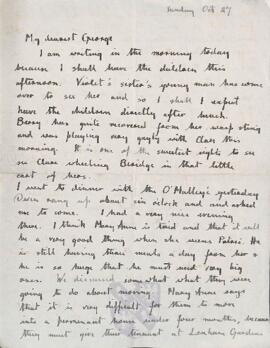 Sunday Oct 27
My dearest George
I am writing in the morning today
because I shall have the children this
afternoon. Violet's sister's young man has come
over to see her and so I shall I expect
have the children directly after lunch.
Berry has quite recovered from her wasp sting
and was playing very gayly with Clare this
morning. It is one of the sweetest sights to see
our Clare wheeling Berridge in that little
cart of hers.
I went to dinner with the O'Malley's yesterday
Owen rang up about six o'clock and asked
me to come. I had a very nice evening
there. I think Mary Anne is tired and that it will
be a very good thing when she weans Palace. He
is still having three meals a day from her &
he is so huge that he must need very big
ones. We discussed somewhat what they were
going to do about moving. Mary Anne says
that it is very difficult for them to move
into a permanent house under four months, because
they must give their tenant at Lexham Gardens